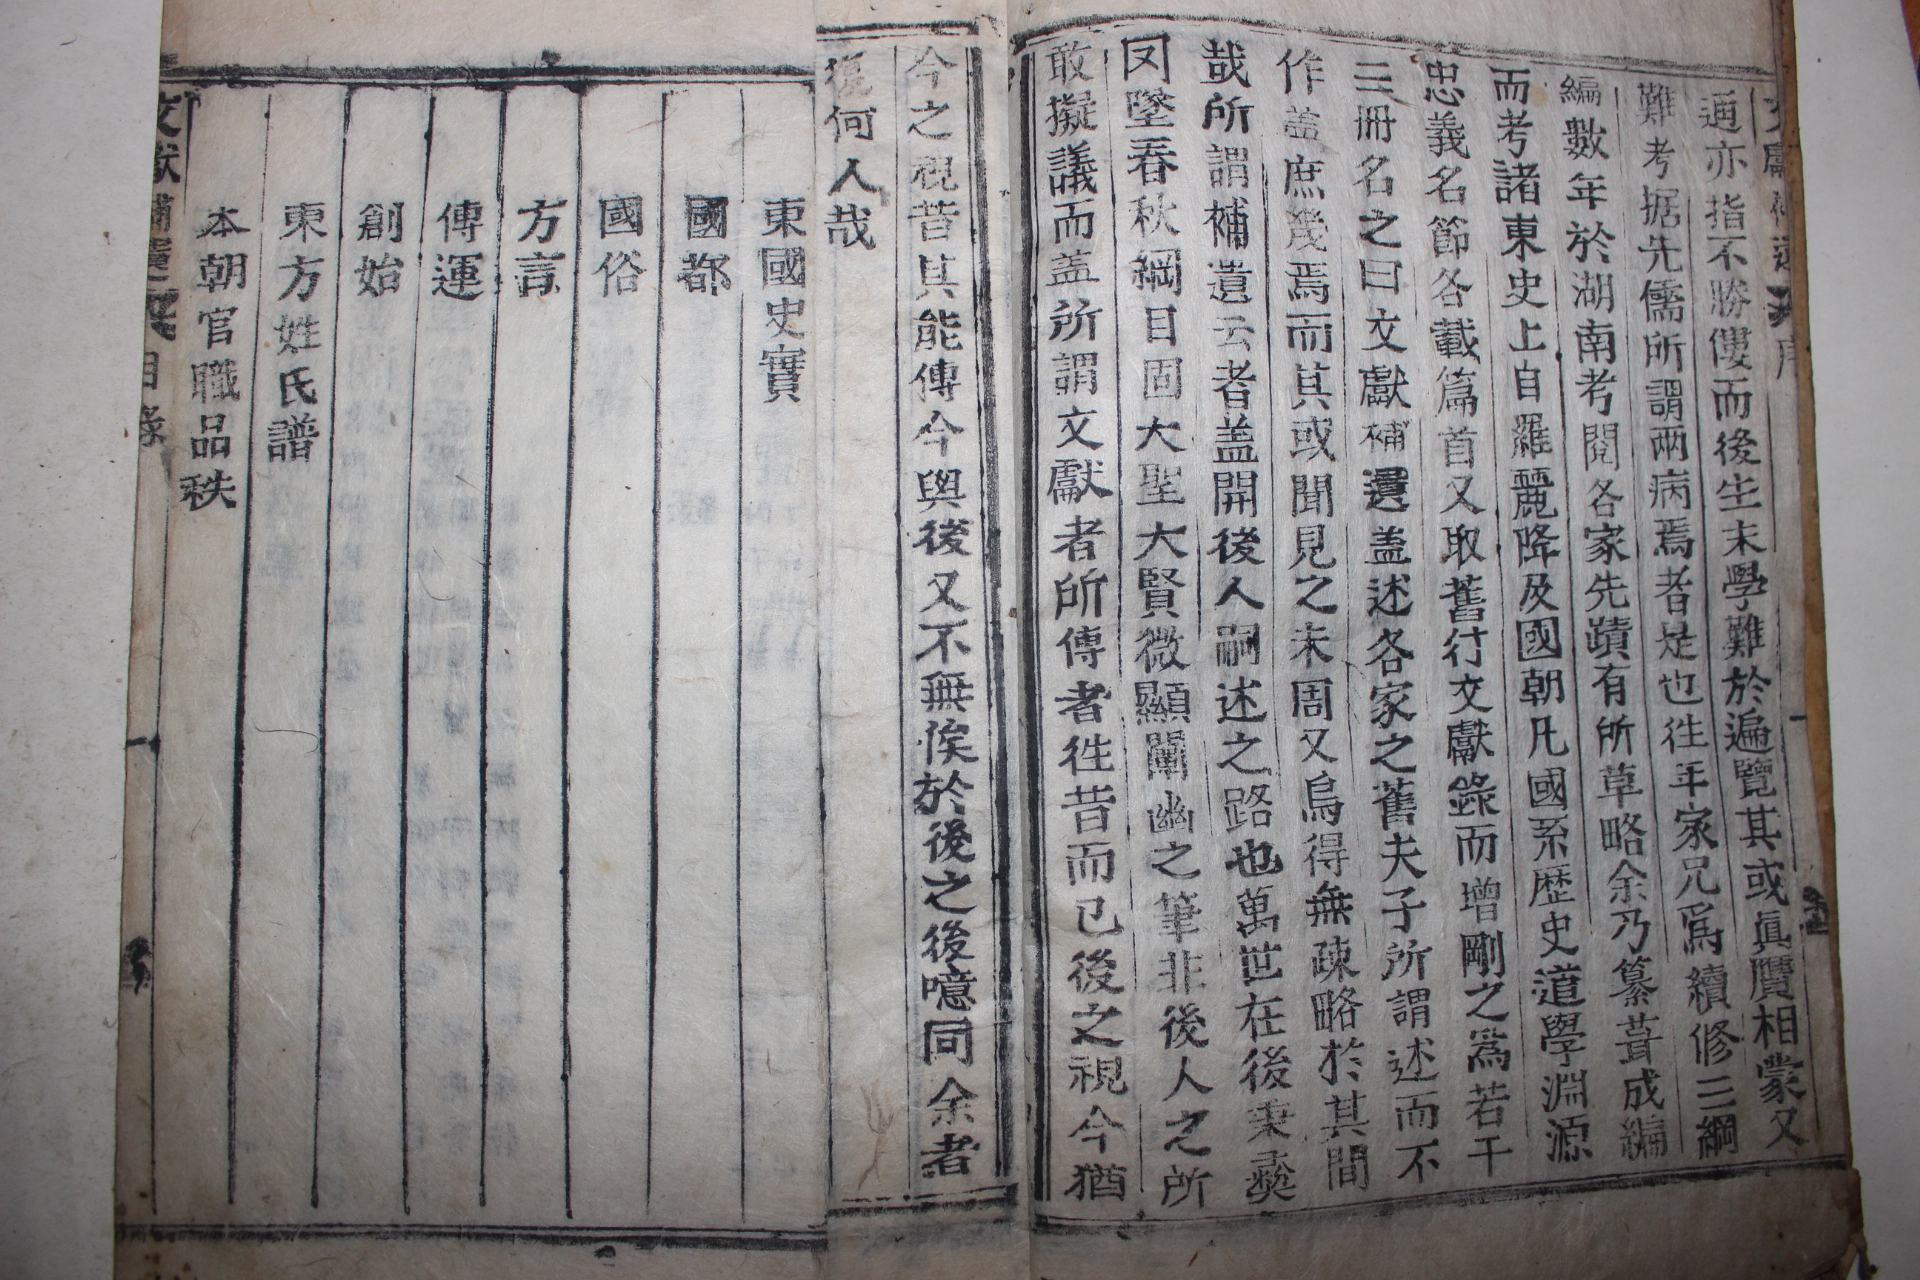 通亦指不勝僂而後生末學難於遍覽其或眞贋相蒙又
難考据先儒所謂兩病焉者是也徃年家兄爲續修三綱
編數年於湖南考閱各家先蹟有所草略余乃纂葺成編
而考諸東史上自羅麗降及國朝凡國系歷史道學淵源
忠義名節各載篇首又取舊行文獻錄而增刪之爲若干
三冊名之曰文獻補遺盖述各家之舊夫子所謂述而不
作盖庶幾焉而其或聞見之未周又烏得無疎略於其間
哉所謂補遺云者盖開後人嗣述之路也萬世在後秉彜
罔墜春秋綱目固大聖大賢微顯闡幽之筆非後人之所
敢擬議而盖所謂文獻者所傳者徃昔而已後之視今猶
今之視昔其能傳今與後又不無俟於後之後噫同余者
復何人哉
東國史實
國都
國俗
方言
傳運
創始
東方姓氏譜
本朝官職品秩
文獻補遺 目錄